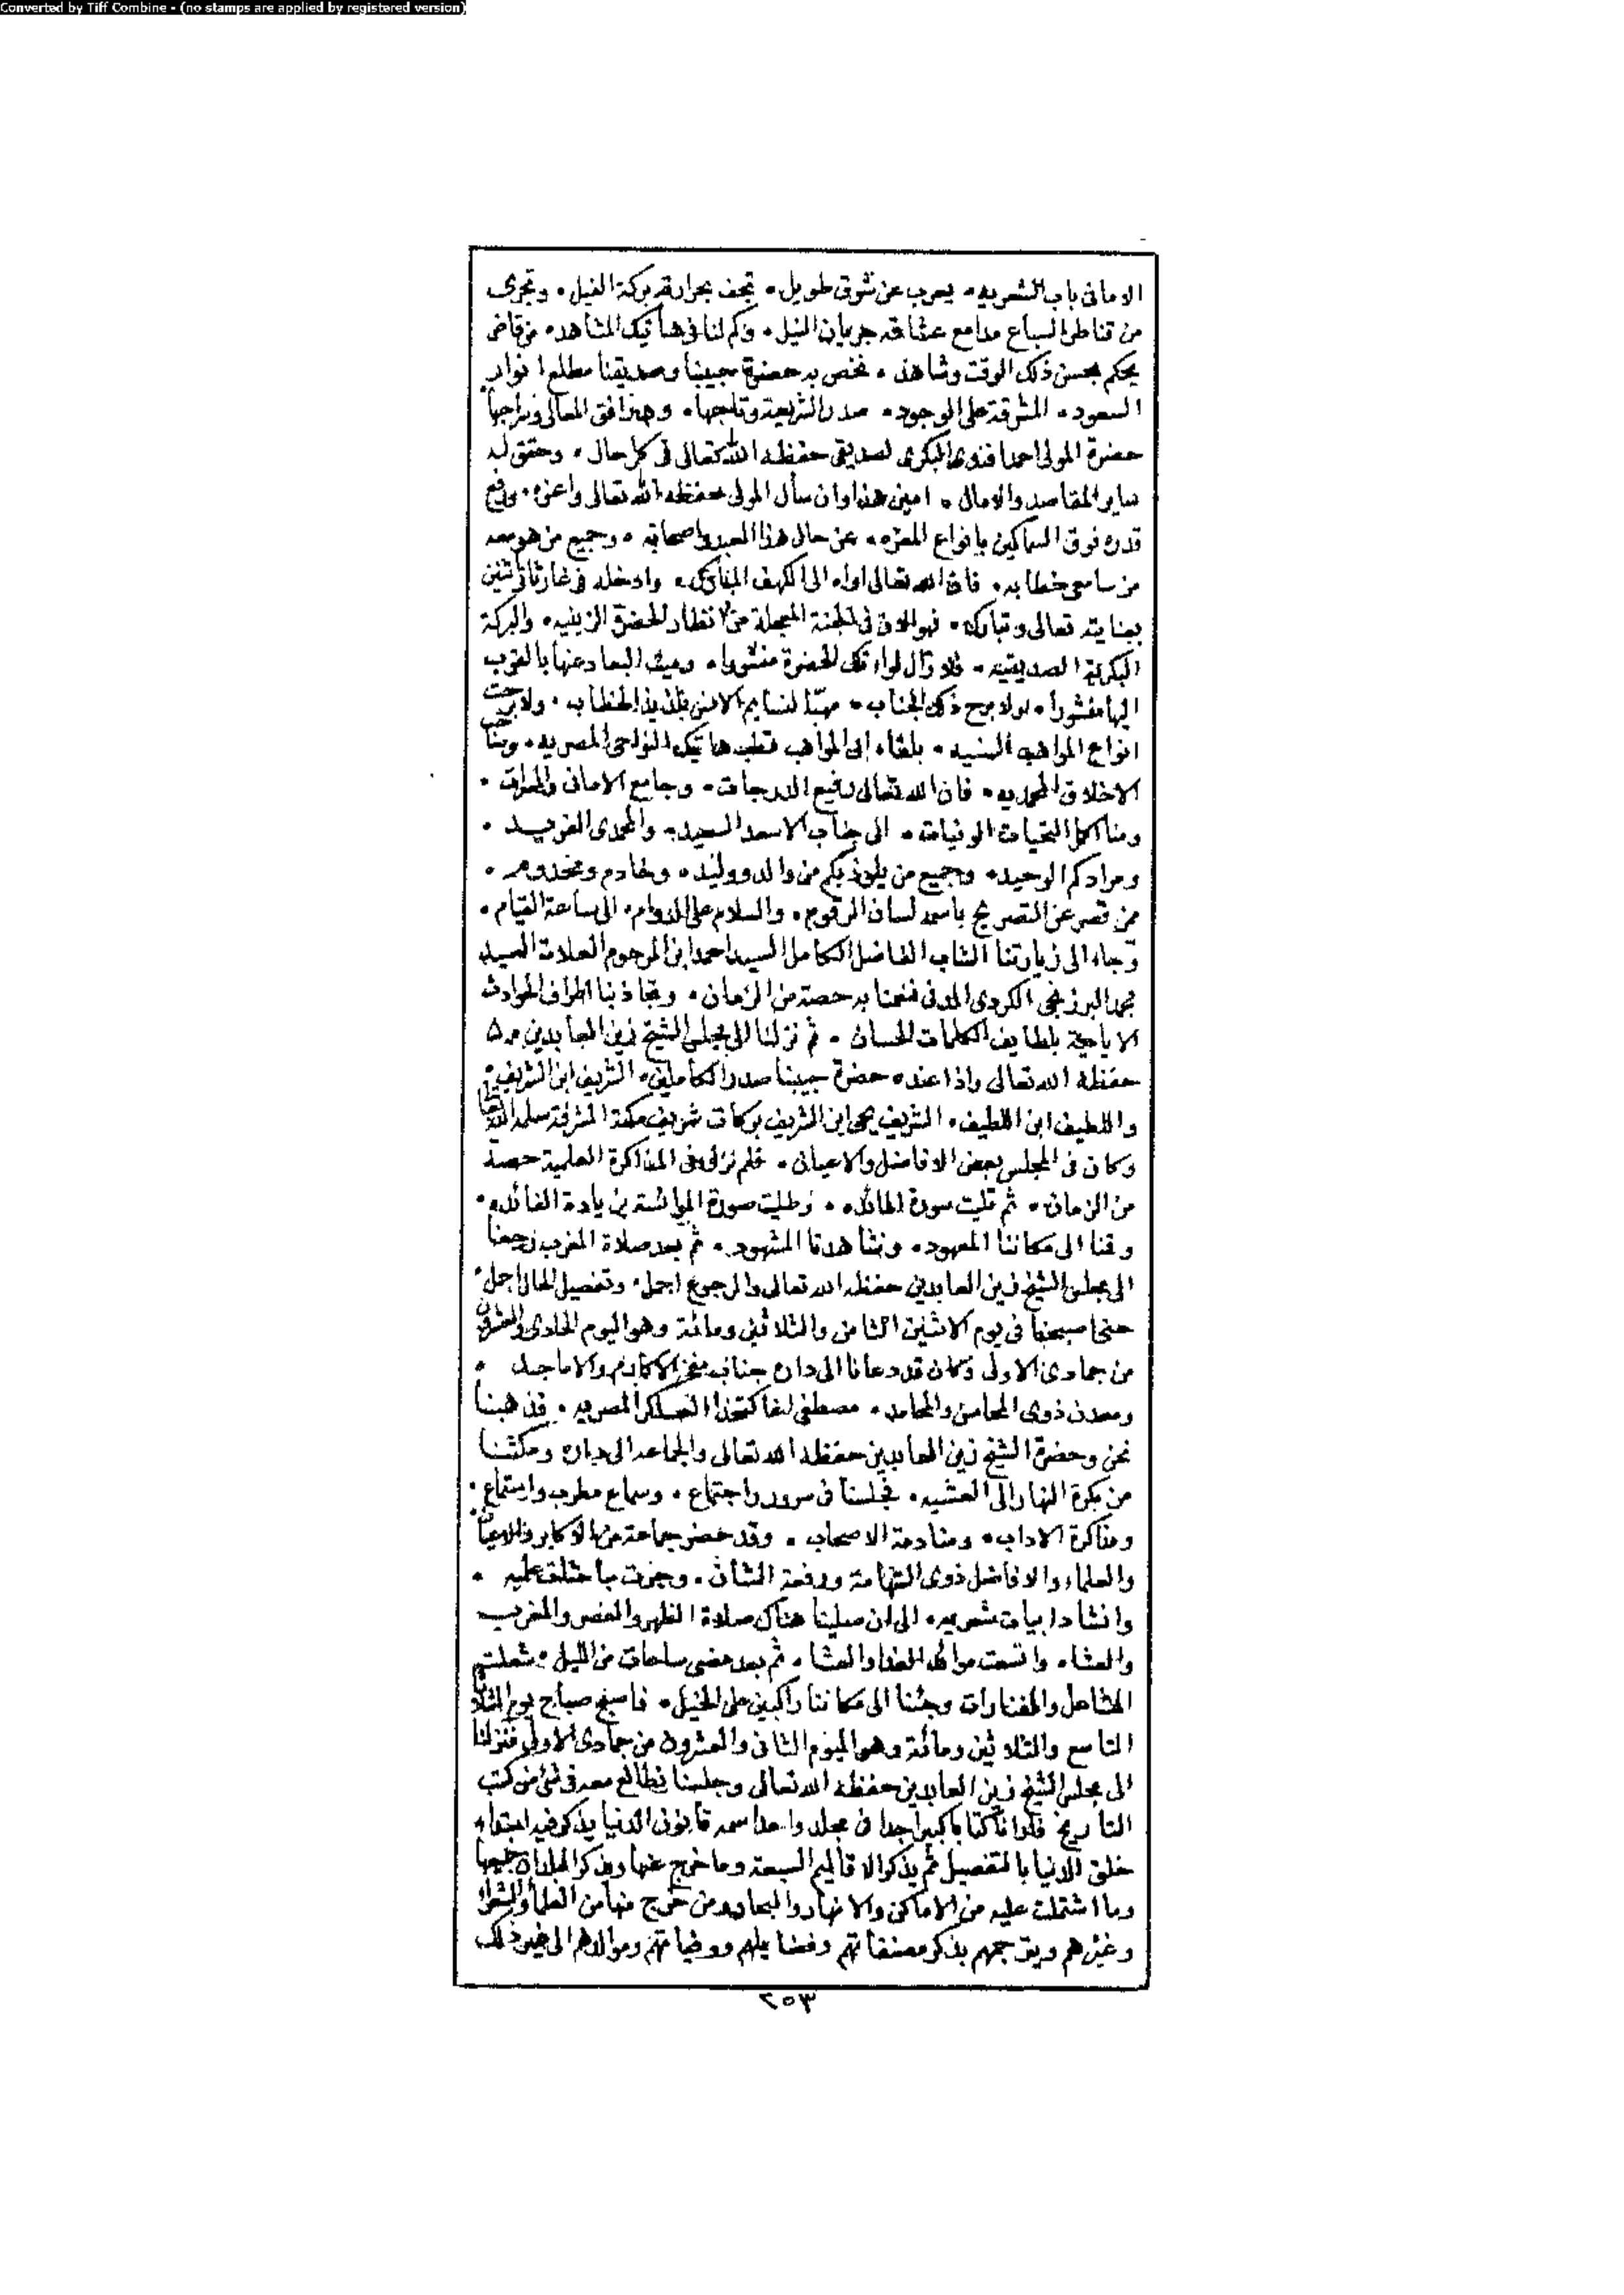 Converted by Tiff Combine - (no stamps are applied by registered version)
الاماني باب الشعريه ۰ يعرب عن شوق طويل ۰ تجف بحرارته بركة الفيل ۰ وتجرى
من قناطر السباع مدامع عشاقه جريان النيل ۰ وكم لنا في هاتيك المشاهد ۰ من قاض
يحكم بحسن ذلك الوقت وشاهد ۰ نخص به حضرة حبيبنا وصديقنا مطلع انوار
السعود ۰ المشرقة على الوجود ۰ صدر الشريعة وتاجها ۰ وبدر افق المعالى وسراجها
حضرة المولى احمد افندى البكرى الصديقى حفظه الله تعالى في كل حال ۰ وحقق له
ساير المقاصد والامال ۰ امين هذا وان سأل المولى حفظه الله تعالى واعزه ۰ ورفع
قدره فوق السماكين بانواع المعزه ۰ عن حال هذا العبد واصحابه ۰ وجميع من هو معه
من سامعى خطابه ۰ فان الله تعالى اواه الى الكهف المبارك ۰ وادخله في غار ثاني اثنين
بعنايته تعالى وتبارك ۰ فهو الان في الجنة المعجلة من انظار الحضرة الزينيه ۰ والبركة
البكرية الصديقيه ۰ فلا زال لواء تلك الحضرة منشورا ۰ وميت البعاد عنها بالقرب
اليها منشورا ۰ ولا برح ذلك الجناب ۰ مهبّا لنسايم الانس بلذيذ الخطاب ۰ ولا برحت
انواع المواهب السنيه ۰ بلقاء ابى المواهب قطب هاتيك النواحى المصريه ۰ وصاحب
الاخلاق المحمديه ۰ فان الله تعالى رفيع الدرجات ۰ وجامع الامانى والمسرات ۰
ومنا اكمل التحيات الوفيات ۰ الى جناب الاسعد السعيد ۰ والمحمدى الفريد ۰
ومرادكم الوحيد ۰ وجميع من يلوذ بكم من والد ووليد ۰ وخادم ومخدوم ۰
من قصر عن التصريح باسمه لسان المرقوم ۰ والسلام على الدوام ۰ الى ساعة القيام ۰
وجاء الى زيارتنا الشاب الفاضل الكامل السيد احمد ابن المرحوم العلامة السيد
محمد البرزنجى الكردى المدنى فنعمنا به حصة من الزمان ۰ وتجاذبنا اطراف الحوادث
بلطايف الكلمات الحسان ۰ ثم نزلنا الى مجلس الشيخ زين العابدين
حفظه الله تعالى واذا عنده حضرة حبيبنا صدر الكاملين ۰ الشريف ابن الشريف ۰
واللطيف ابن اللطيف ۰ الشريف يحيى ابن الشريف بركات شريف مكة المشرفة سلمه الله تعالى
وكان في المجلس بعض الافاضل والاعيان ۰ فلم نزل في المذاكرة العلمية حصة
من الزمان ۰ ثم تليت سورة المائده ۰ وطلبت صورة الموانسة بزيادة الفائده ۰
وقمنا الى مكاننا المعهود ۰ وشاهدنا المشهود ۰ ثم بعد صلاة المغرب رجعنا
الى مجلس الشيخ زين العابدين حفظه الله تعالى والرجوع اجمل ۰ وتفصيل الحال اجمل ۰
حتى اصبحنا في يوم الاثنين الثامن والثلاثين ومائة وهو اليوم الحادى والعشرون
من جمادى الاولى وكان قد دعانا الى داره جناب مفخر الاكارم والاماجد ۰
ومعدن ذوى المحاسن والمحامد ۰ مصطفى اغا كتخدا العساكر المصريه ۰ فذهبنا
نحن وحضرة الشيخ زين العابدين حفظه الله تعالى والجماعه الى داره ومكثنا
من بكرة النهار الى العشيه ۰ فجلسنا في سرور واجتماع ۰ وسماع مطرب واستماع ۰
ومذاكرة الاداب ۰ ومنادمة الاصحاب ۰ وقد حضر جماعة من الاكابر والاعيان
والعلماء والافاضل ذوى الشهامة ورفعة الشان ۰ وجرت مباحث علميه ۰
وانشاد ابيات شعريه ۰ الى ان صلينا هناك صلاة الظهر والعصر والمغرب
والعشاء ۰ واتسعت موائد الغدا والعشا ۰ ثم بعد مضى ساعات من الليل ۰ شعلت
المشاعل والفنارات وجئنا الى مكاننا راكبين على الخيل ۰ فاصبح صباح يوم الثلاثا
التاسع والثلاثين ومائة وهو اليوم الثانى والعشرون من جمادى الاولى فنزلنا
الى مجلس الشيخ زين العابدين حفظه الله تعالى وجلسنا نطالع معه في شئ من كتب
التاريخ فارانا كتابا كبيرا جدا في مجلد واحد اسمه قانون الدنيا يذكر فيه ابتداء
خلق الدنيا بالتفصيل ثم يذكر الاقاليم السبعة وما خرج عنها ويذكر البلدان جميعها
وما اشتملت عليه من الاماكن والانهار والبحار ومن خرج منها من العلماء والشعراء
وغيرهم ويترجمهم بذكر مصنفاتهم وفضايلهم ووفياتهم وموالدهم الى غير ذلك
٢٥٣